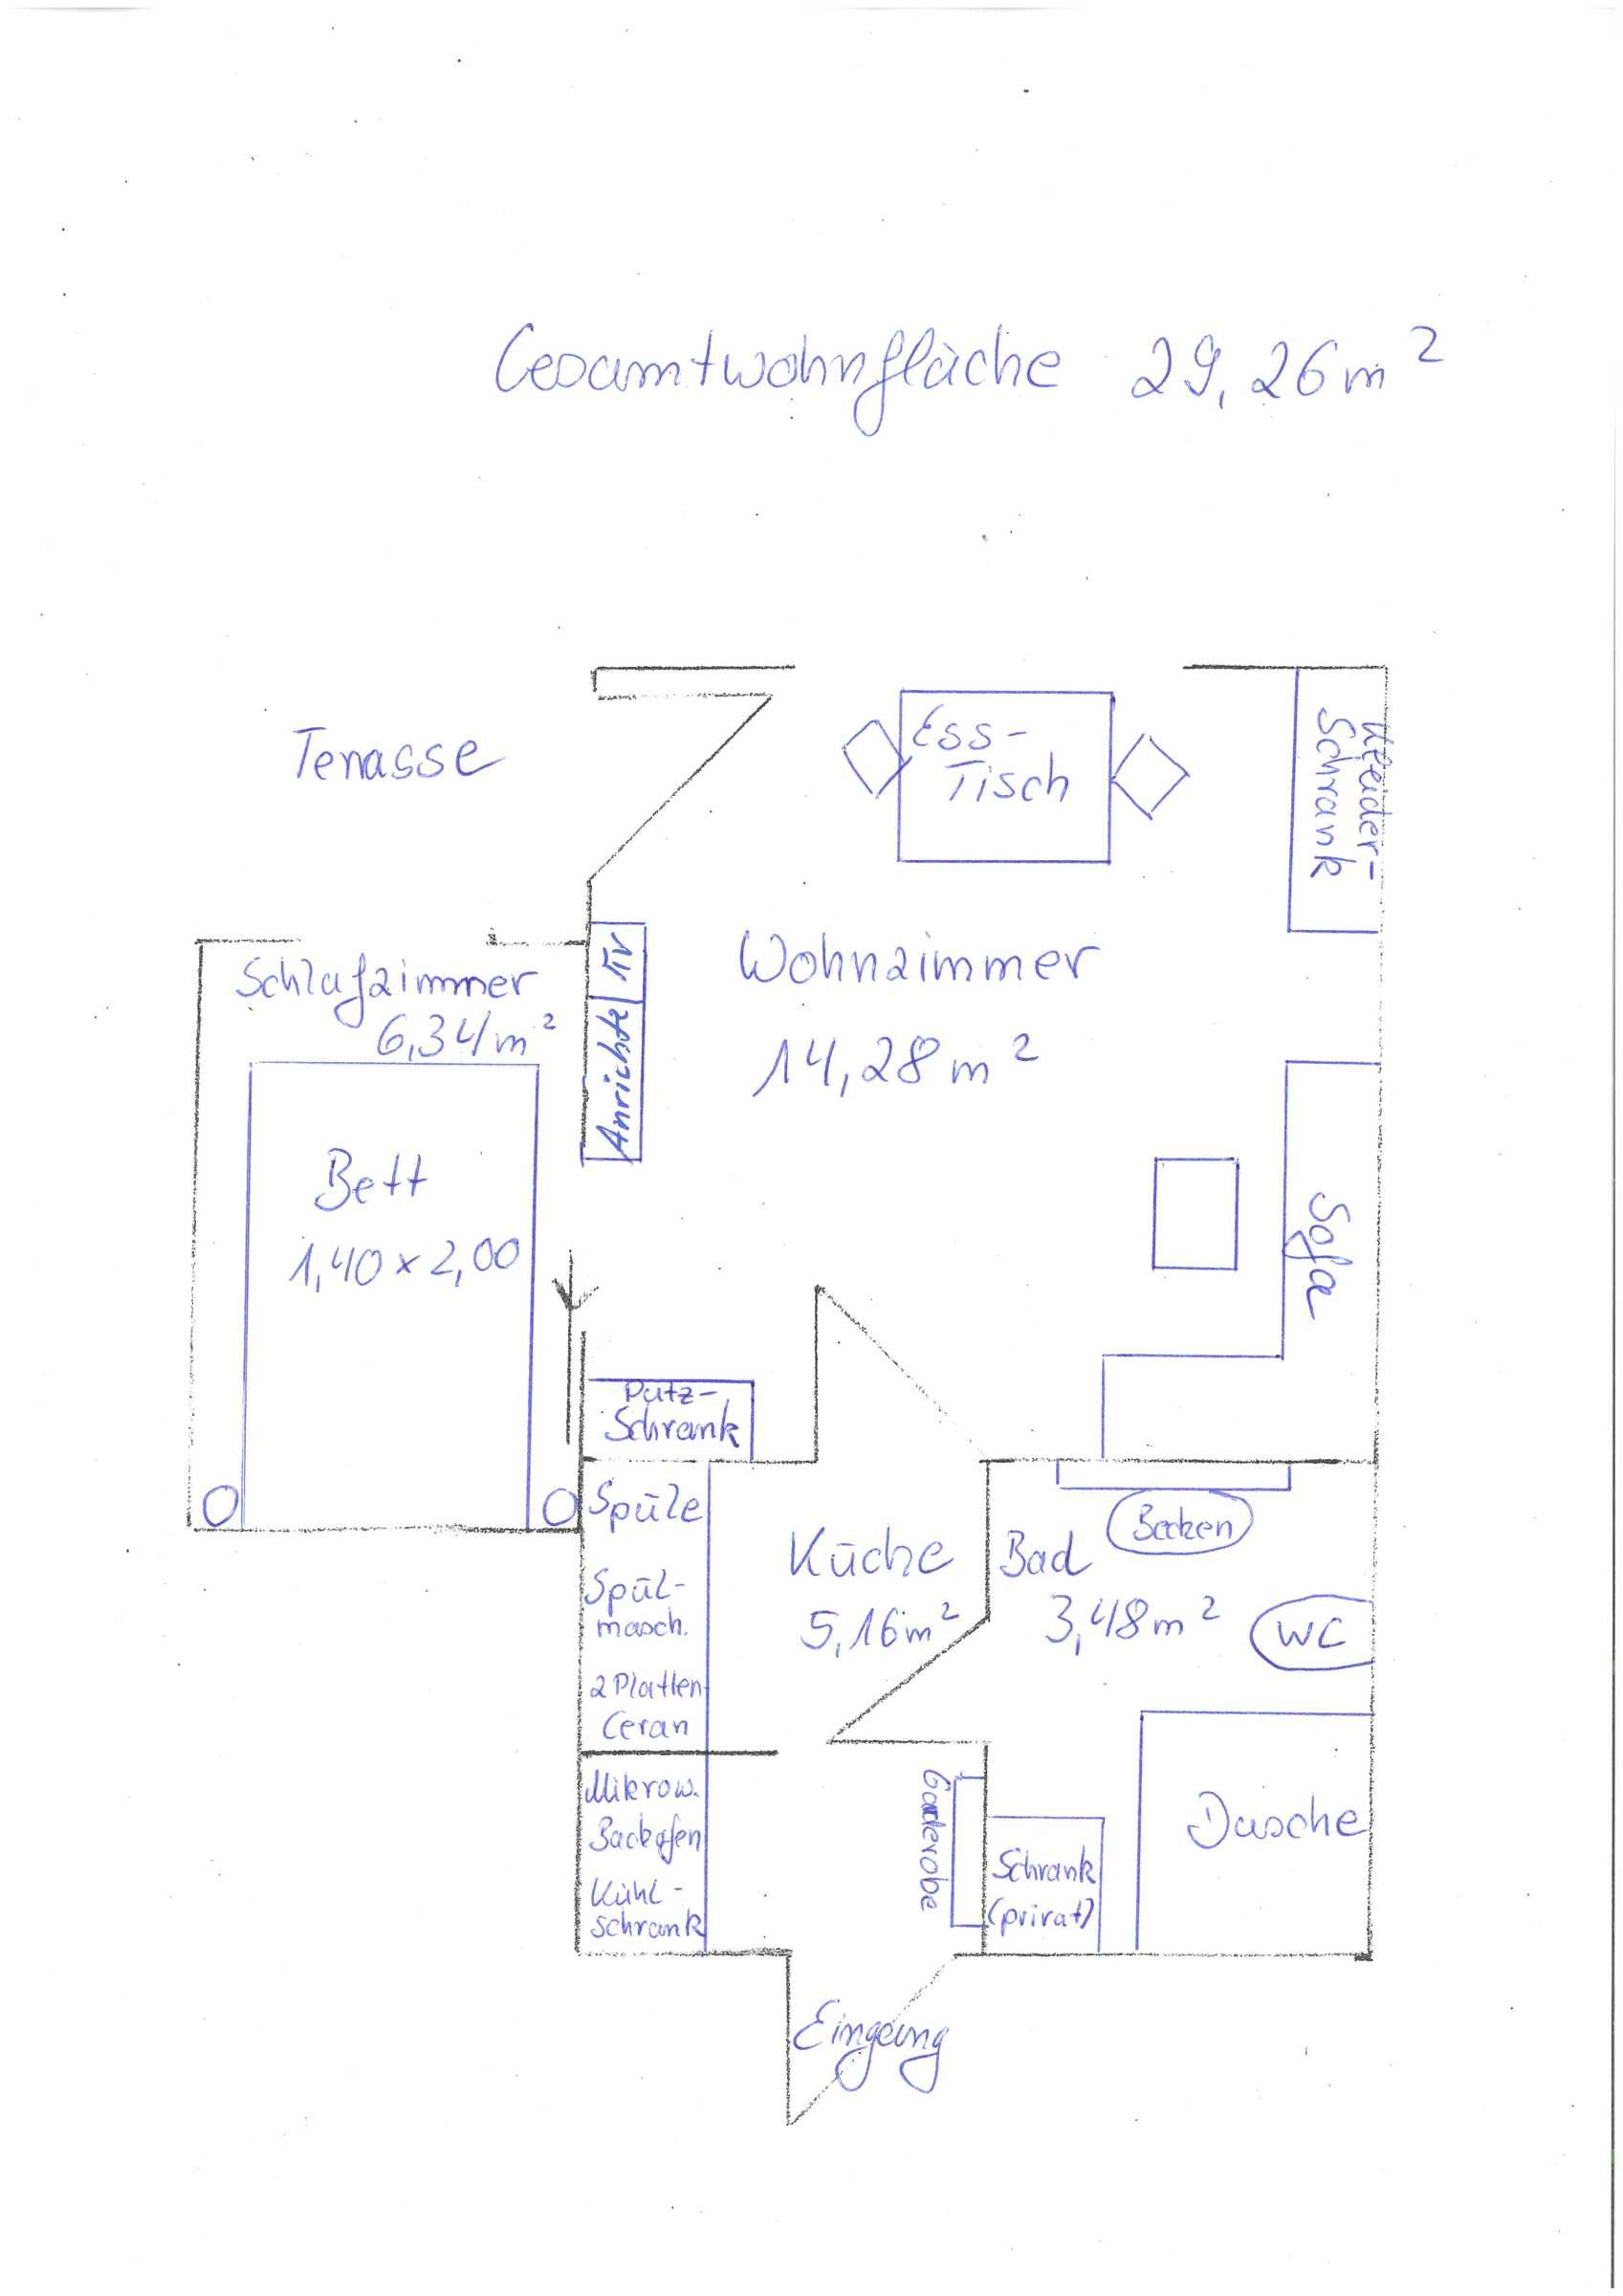 Gesamtwohnfläche 29,26 m²
Terrasse
Ess-
Tisch
Kleider-
Schrank
Schlafzimmer
6,34 m²
TV
Anrichte
Wohnzimmer
14,28 m²
Bett
1,40 x 2,00
Sofa
Putz-
Schrank
Spüle
Spül-
masch.
2 Platten
Ceran
Küche
5,16 m²
Bad
3,48 m²
Becken
WC
Mikrow.
Backofen
Kühl-
schrank
Garderobe
Schrank
(privat)
Dusche
Eingang